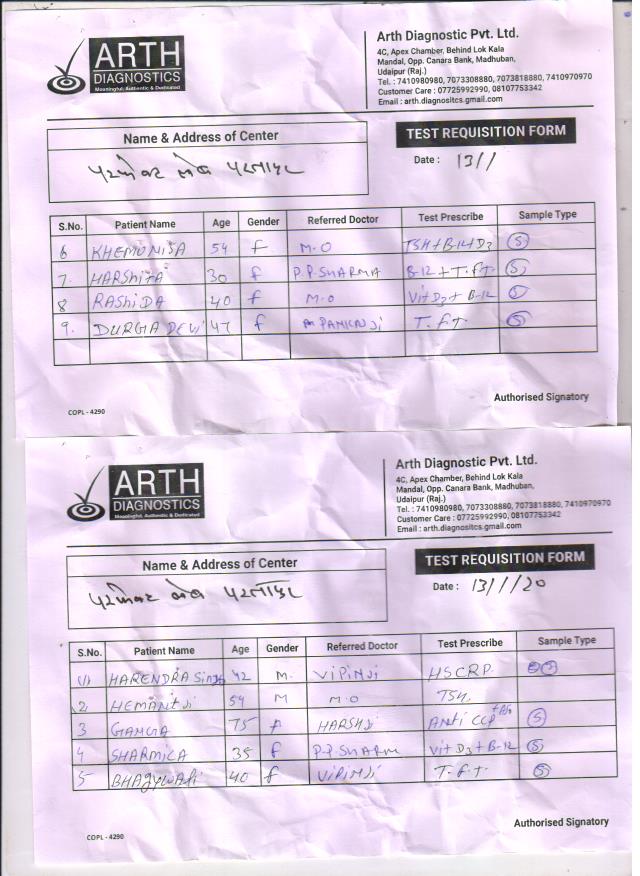 ARTH
DIAGNOSTICS
Meaningful, Authentic & Dedicated
Arth Diagnostic Pvt. Ltd.
4C, Apex Chamber, Behind Lok Kala
Mandal, Opp. Canara Bank, Madhuban,
Udaipur (Raj.)
Tel. : 7410980980, 7073308880, 7073818880, 7410970970
Customer Care : 07725992990, 08107753342
Email : arth.diagnositcs.gmail.com
Name & Address of Center
TEST REQUISITION FORM
Date : 13/1
S.No. Patient Name Age Gender Referred Doctor Test Prescribe Sample Type
6 KHEMUNISA 54 f M.O TSH+B-12+D3 S
7. HARSHITA 30 f P.P.SHARMA B-12+T.f.t S
8 RASHIDA 40 f M.O Vit D3+B-12 S
9. DURGA DEVI 47 f T.f.T. S
Authorised Signatory
COPL - 4290
ARTH
DIAGNOSTICS
Meaningful, Authentic & Dedicated
Arth Diagnostic Pvt. Ltd.
4C, Apex Chamber, Behind Lok Kala
Mandal, Opp. Canara Bank, Madhuban,
Udaipur (Raj.)
Tel. : 7410980980, 7073308880, 7073818880, 7410970970
Customer Care : 07725992990, 08107753342
Email : arth.diagnositcs.gmail.com
Name & Address of Center
TEST REQUISITION FORM
Date : 13/1/20
S.No. Patient Name Age Gender Referred Doctor Test Prescribe Sample Type
(1) HARENDRA Singh 42 M. ViPiNJi HSCRP. S
2 HEMANT Ji 54 M M.O TSH.
3 GANGA 75 f HARSHJi Anti CCP S
4 SHARMILA 35 f P.P.SHARM Vit D3+B-12 S
5 40 f ViPiNJi T.f.T. S
Authorised Signatory
COPL - 4290